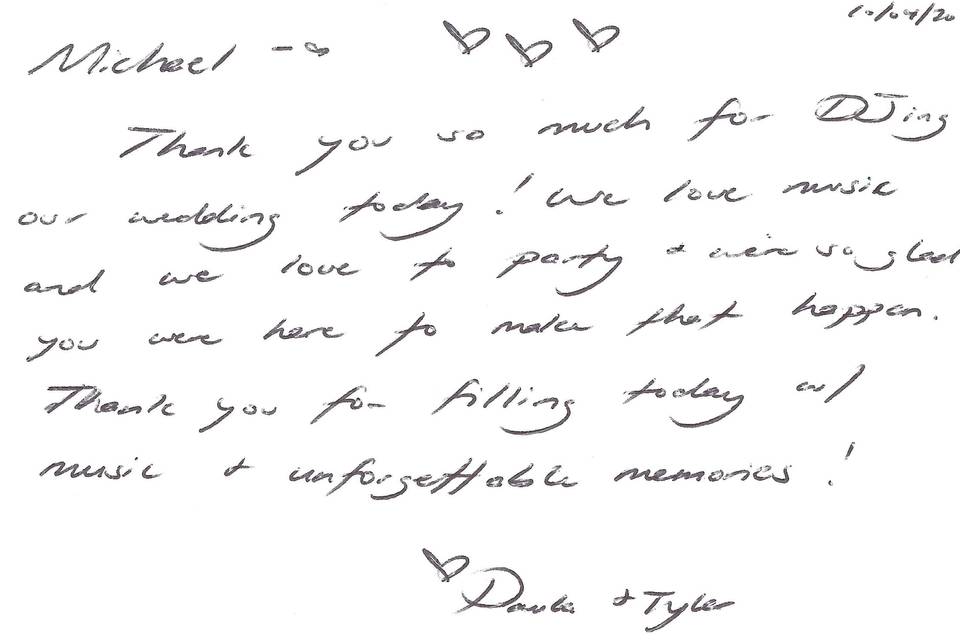 10/04/20
Michael -
Thank you so much for DJing
our wedding today! We love music
and we love to party + we're so glad
you were here to make that happen.
Thank you for filling today w/
music + unforgettable memories!
Paula + Tyler